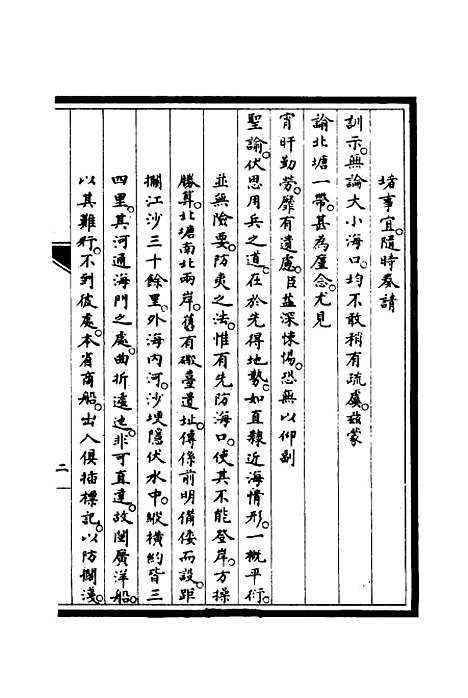 堵事宜。隨時奏請
訓示。無論大小海口。均不敢稍有疏虞。茲蒙
諭北塘一帶。甚為廑念。尤見
宵旰勤勞。靡有遺慮。臣益深悚惕。恐無以仰副
聖諭。伏思用兵之道。在於先得地勢。如直隸近海情形。一概平衍。
並無險要。防夷之法。惟有先防海口。使其不能登岸。方操
勝算。北塘南北兩岸。舊有礮臺遺址。傳係前明備倭而設。距
攔江沙三十餘里。外海內河。沙埂隱伏水中。縱橫約皆三
四里。其河通海門之處。曲折遠迤。非可直達。故閩廣洋船。
以其難行。不到彼處。本省商船。出入俱插標記。以防擱淺。
二一